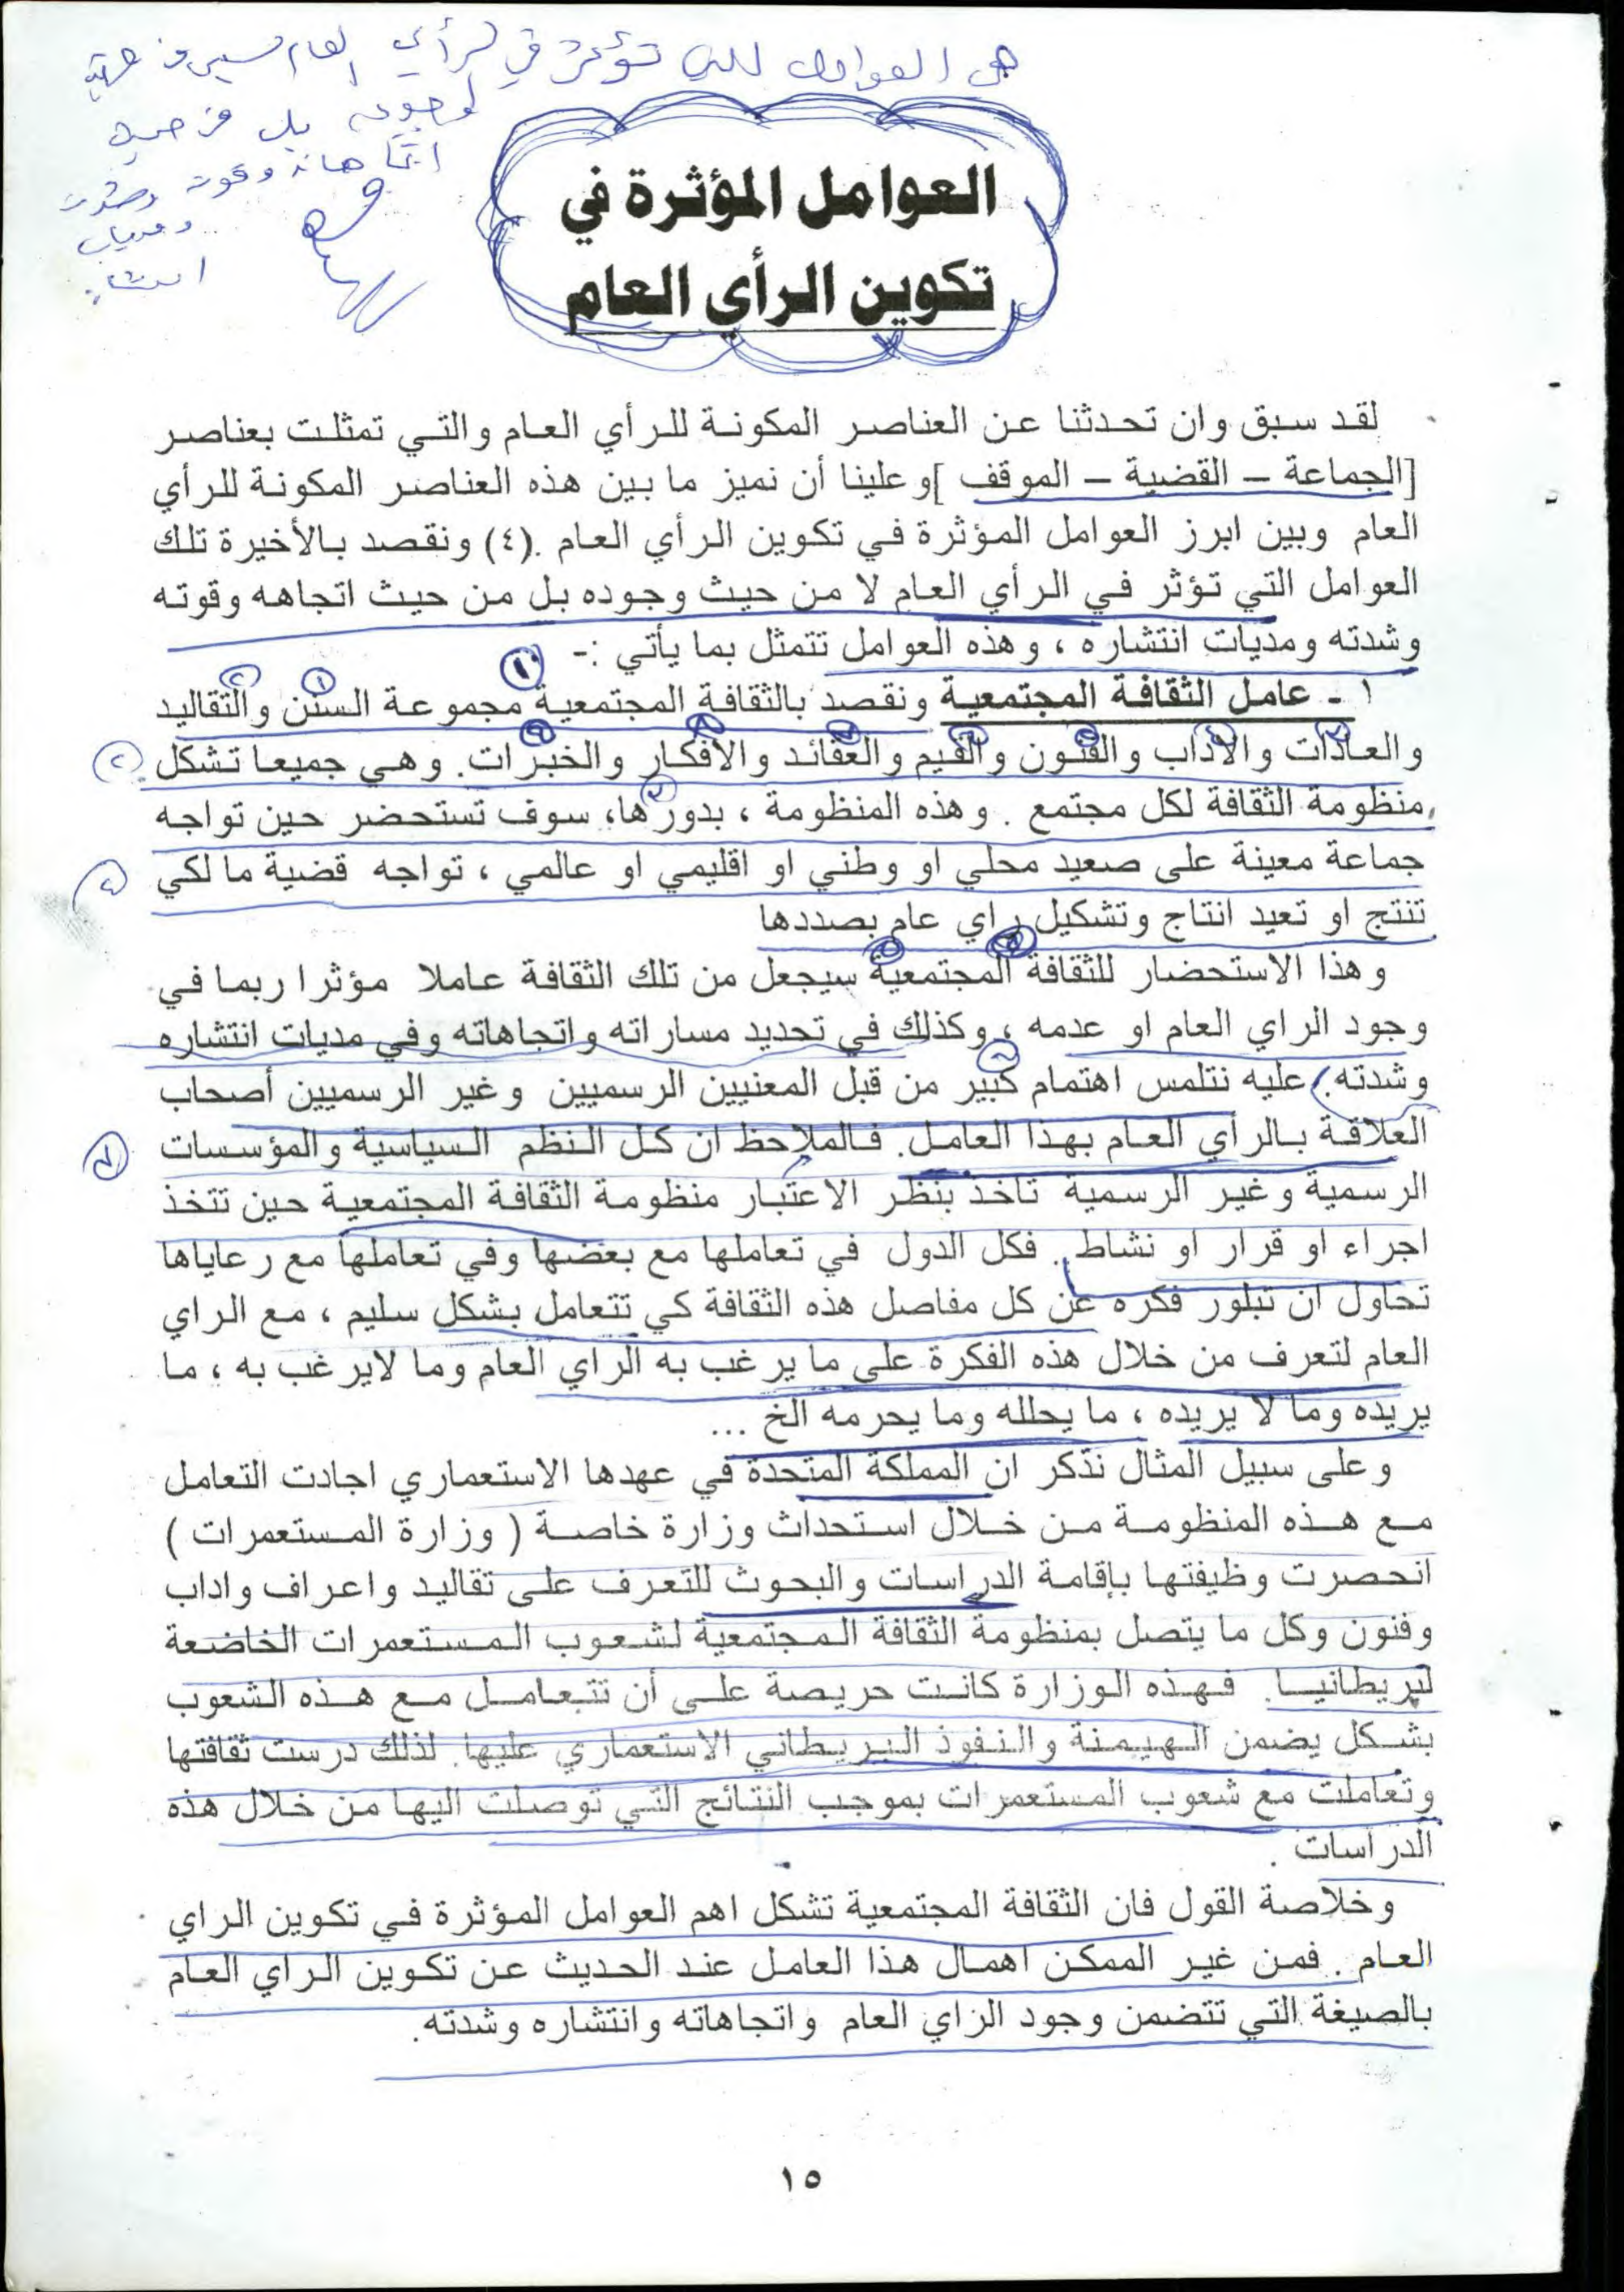 هي العوامل التي تؤثر في الرأي العام ليس من
لوجوده بل من حيث
اتجاهاته وقوته وشدته
ومديات
انتشاره
العوامل المؤثرة في
تكوين الرأي العام
لقد سبق وان تحدثنا عن العناصر المكونة للرأي العام والتي تمثلت بعناصر
[الجماعة – القضية – الموقف ]وعلينا أن نميز ما بين هذه العناصر المكونة للرأي
العام وبين ابرز العوامل المؤثرة في تكوين الرأي العام .(٤) ونقصد بالأخيرة تلك
العوامل التي تؤثر في الرأي العام لا من حيث وجوده بل من حيث اتجاهه وقوته
وشدته ومديات انتشاره ، وهذه العوامل تتمثل بما يأتي :-
١ - عامل الثقافة المجتمعية ونقصد بالثقافة المجتمعية مجموعة السنن والتقاليد
والعادات والاداب والفنون والقيم والعقائد والأفكار والخبرات. وهي جميعا تشكل
منظومة الثقافة لكل مجتمع . وهذه المنظومة ، بدورها، سوف تستحضر حين تواجه
جماعة معينة على صعيد محلي او وطني او اقليمي او عالمي ، تواجه قضية ما لكي
تنتج او تعيد انتاج وتشكيل راي عام بصددها
وهذا الاستحضار للثقافة المجتمعية سيجعل من تلك الثقافة عاملا مؤثرا ربما في
وجود الراي العام او عدمه ، وكذلك في تحديد مساراته واتجاهاته وفي مديات انتشاره
وشدته. عليه نتلمس اهتمام كبير من قبل المعنيين الرسميين وغير الرسميين أصحاب
العلاقة بالراي العام بهذا العامل. فالملاحظ ان كل النظم السياسية والمؤسسات
الرسمية وغير الرسمية تاخذ بنظر الاعتبار منظومة الثقافة المجتمعية حين تتخذ
اجراء او قرار او نشاط. فكل الدول في تعاملها مع بعضها وفي تعاملها مع رعاياها
تحاول ان تبلور فكره عن كل مفاصل هذه الثقافة كي تتعامل بشكل سليم ، مع الراي
العام لتعرف من خلال هذه الفكرة على ما يرغب به الراي العام وما لايرغب به ، ما
يريده وما لا يريده ، ما يحلله وما يحرمه الخ ...
وعلى سبيل المثال نذكر ان المملكة المتحدة في عهدها الاستعماري اجادت التعامل
مع هذه المنظومة من خلال استحداث وزارة خاصة ( وزارة المستعمرات )
انحصرت وظيفتها بإقامة الدراسات والبحوث للتعرف على تقاليد واعراف واداب
وفنون وكل ما يتصل بمنظومة الثقافة المجتمعية لشعوب المستعمرات الخاضعة
لبريطانيا. فهذه الوزارة كانت حريصة على أن تتعامل مع هذه الشعوب
بشكل يضمن الهيمنة والنفوذ البريطاني الاستعماري عليها. لذلك درست ثقافتها
وتعاملت مع شعوب المستعمرات بموجب النتائج التي توصلت اليها من خلال هذه
الدراسات .
وخلاصة القول فان الثقافة المجتمعية تشكل اهم العوامل المؤثرة في تكوين الراي
العام . فمن غير الممكن اهمال هذا العامل عند الحديث عن تكوين الراي العام
بالصيغة التي تتضمن وجود الراي العام واتجاهاته وانتشاره وشدته.
١٥